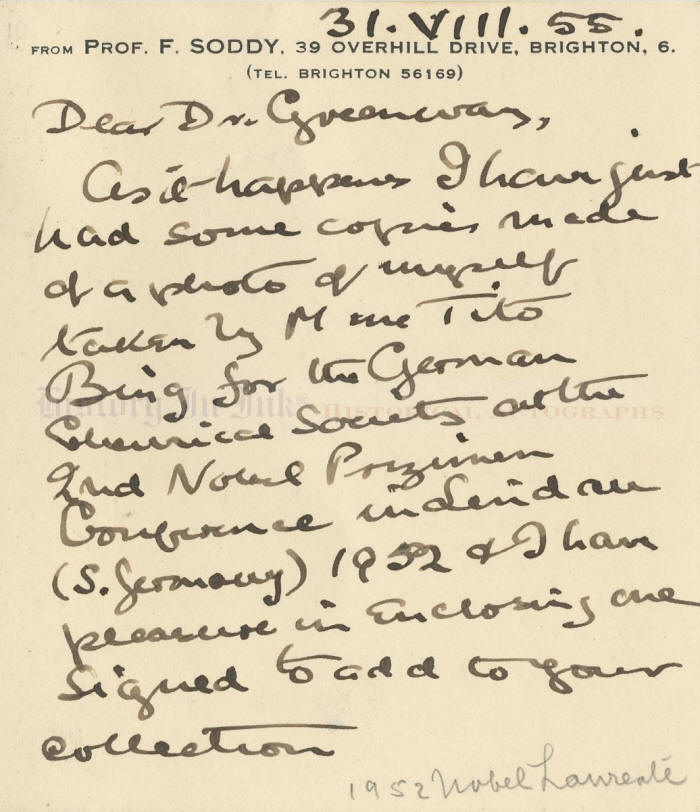 31.VIII.55.
FROM PROF. F. SODDY, 39 OVERHILL DRIVE, BRIGHTON, 6.
(TEL. BRIGHTON 56169)
Dear Dr. Greenway,
As it happens I have just
had some copies made
of a photo of myself
taken by Mme Tito
Bing for the German
Chemical Society at the
2nd Nobel Prizemen
Conference in Lindau
(S. Germany) 1952 & I have
pleasure in enclosing one
signed to add to your
collection
1952 Nobel Laureate
History In Ink® HISTORICAL AUTOGRAPHS